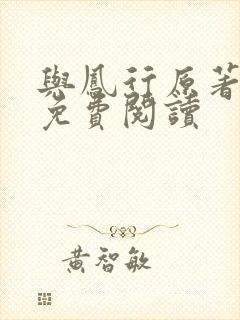 與鳳行原著
免費閱讀
黃智敏